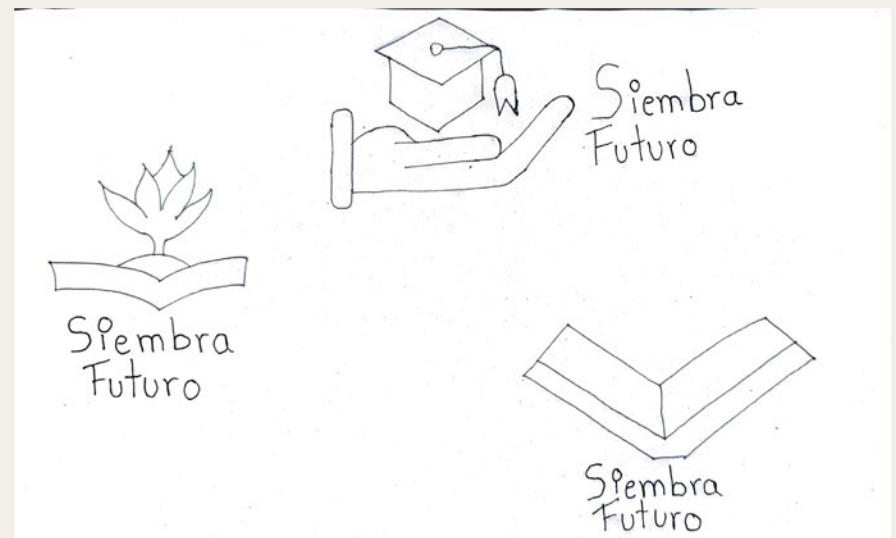 Siembra
Futuro
Siembra
Futuro
Siembra
Futuro